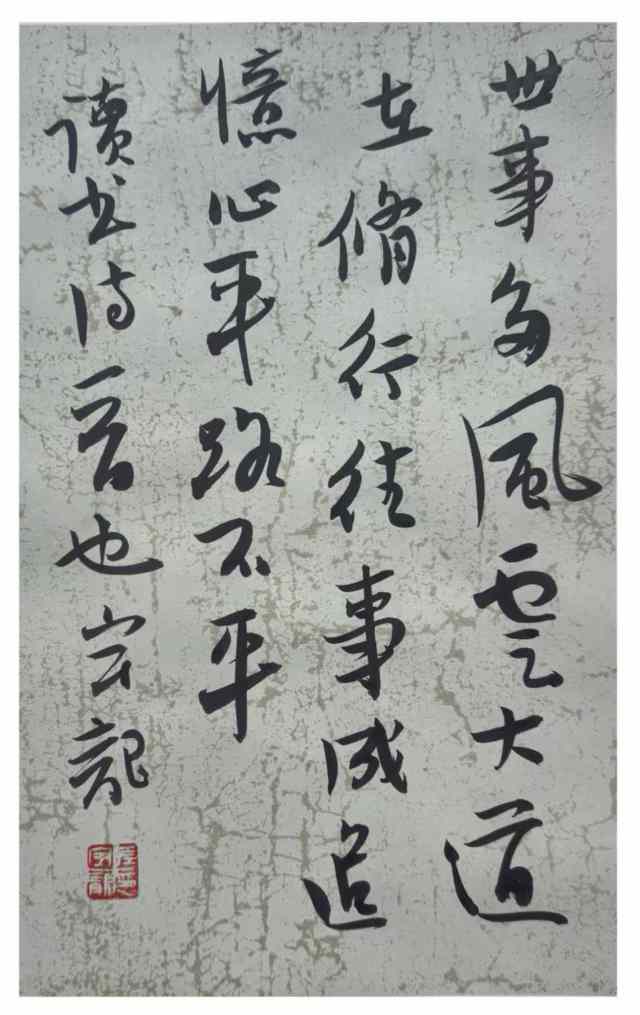 世事多風雲大道
在脩行往事成追
憶心平路不平
讀书也龍